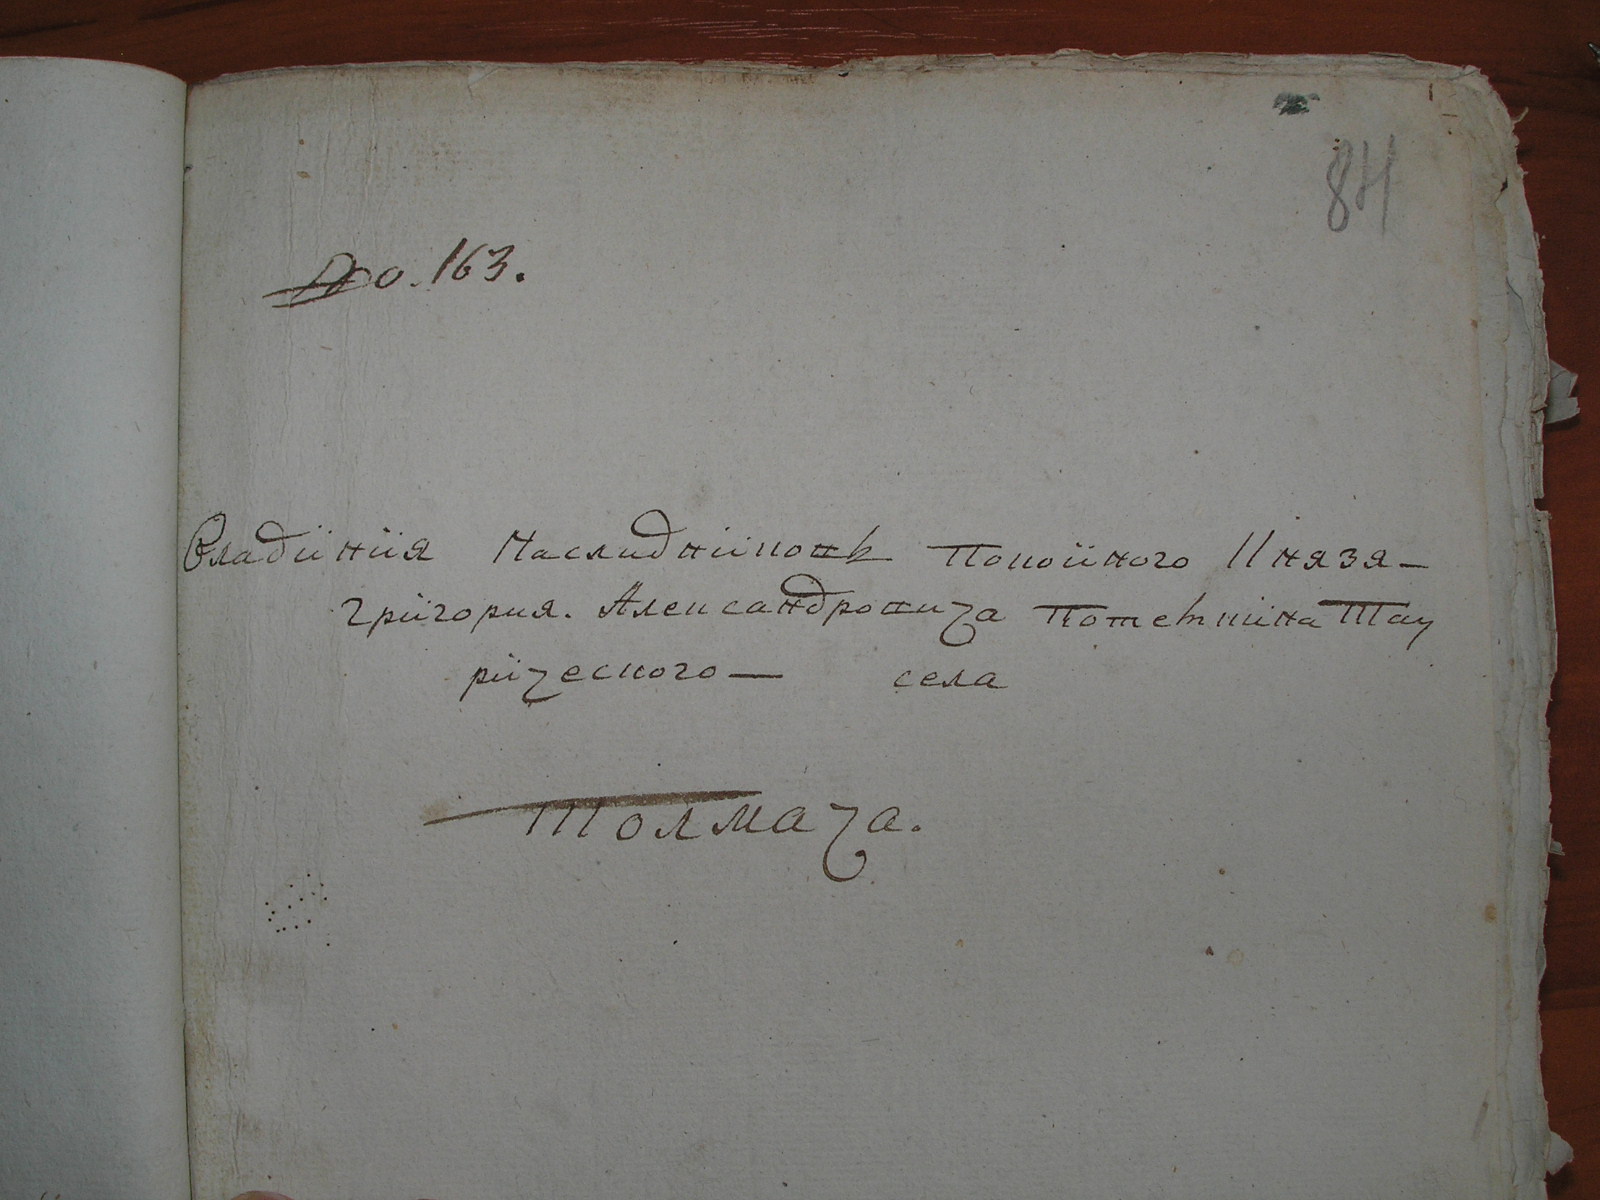 84
No. 163.
Владиния Наслидниковъ Покойного Князя –
Григория. Александровича Потемкина Тау
рического — села
Толмача.